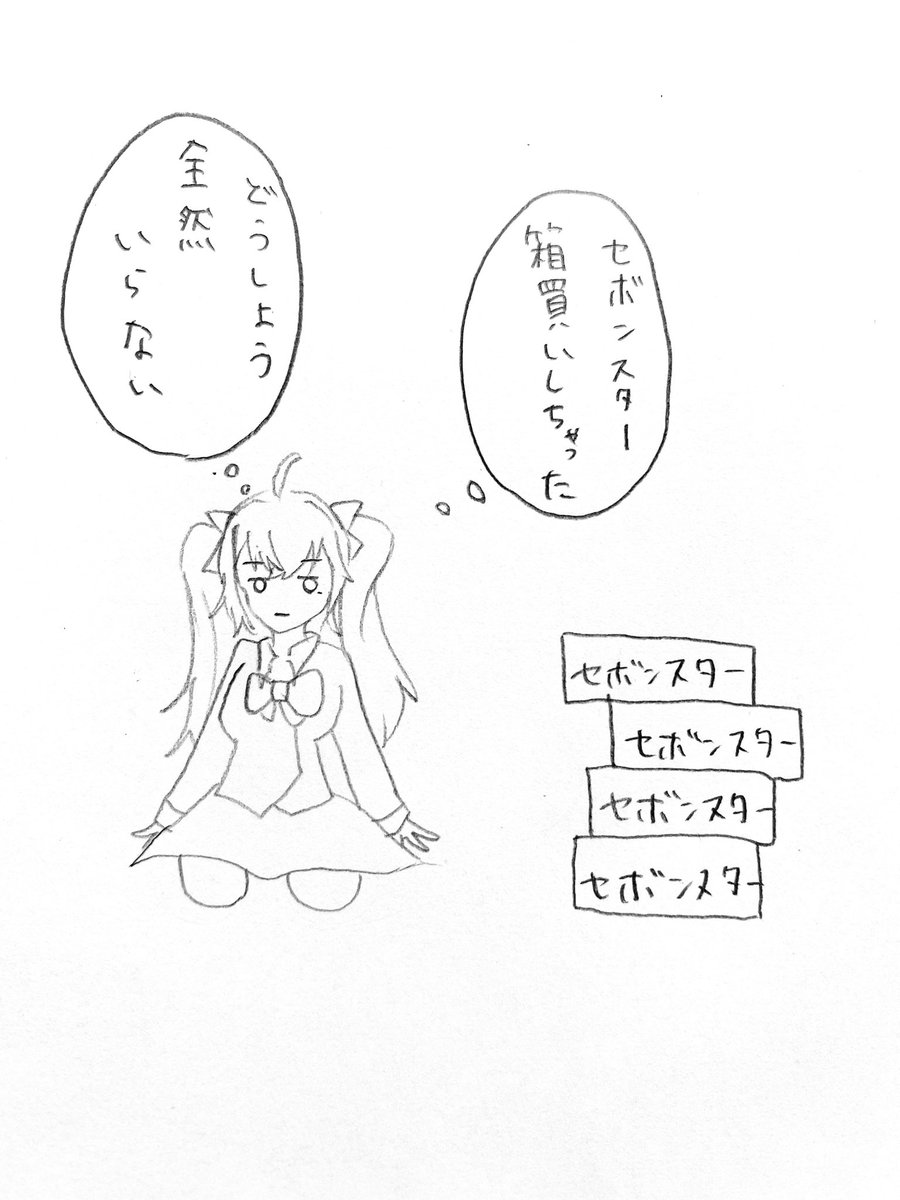 セボンスター
箱買いしちゃった
どうしよう
全然
いらない
セボンスター
セボンスター
セボンスター
セボンスター